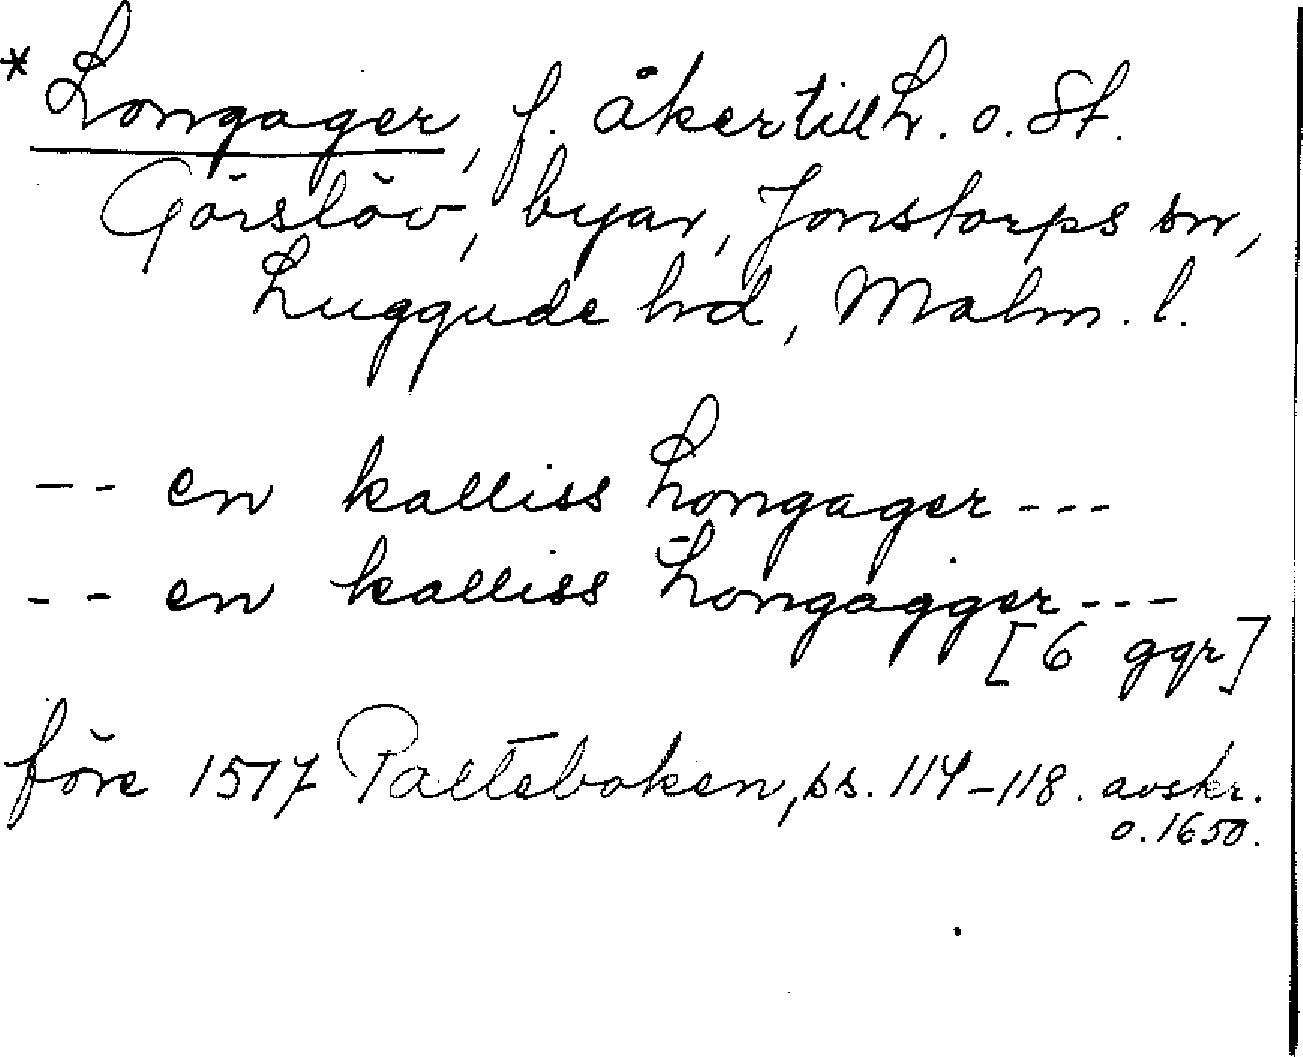 * Longager, f. åker till L. o. St.
Görslöv, byar, Jonstorps sn,
Luggude hd, Malm. l.
-- en kalliss Longager ---
-- en kalliss Longagger ---
[6 ggr]
före 1517 Palteboken, ss. 114-118. avskr.
o. 1650.